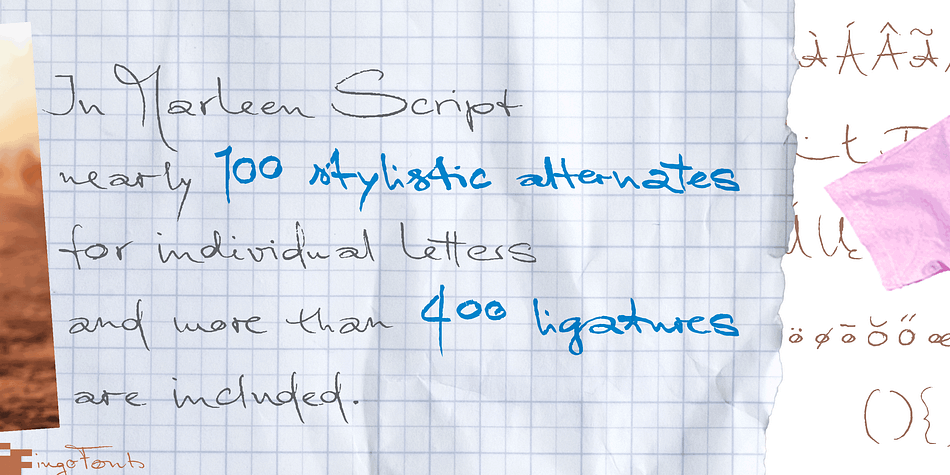 In Marleen Script
nearly 100 stylistic alternates
for individual letters
and more than 400 ligatures
are included.
FingoFonts
À Á Â Ã
ö ø ō ŏ ő œ
( ) {